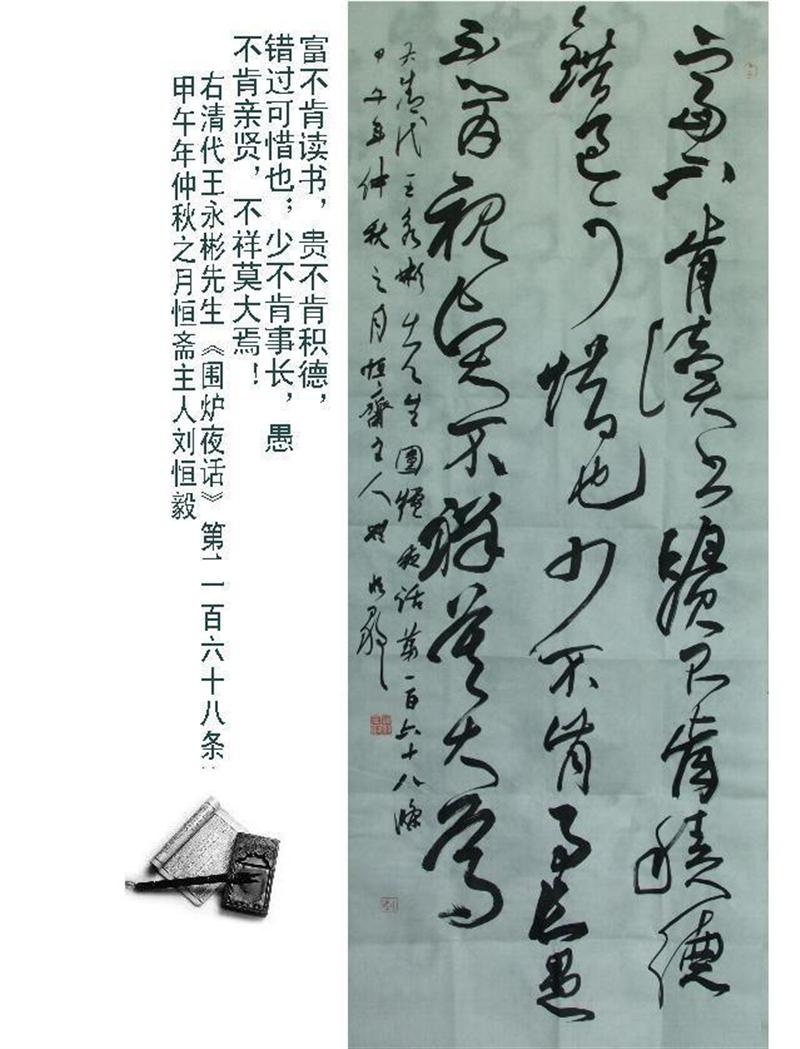 富不肯讀书貴不肯積德
錯過可惜也少不肯事长愚
不肯親賢不祥莫大焉
右清代王永彬先生圍爐夜话第一百六十八條
甲午年仲秋之月恒齋主人劉恒毅
富不肯读书，贵不肯积德，
错过可惜也；少不肯事长，愚
不肯亲贤，不祥莫大焉！
右清代王永彬先生《围炉夜话》第一百六十八条
甲午年仲秋之月恒斋主人刘恒毅